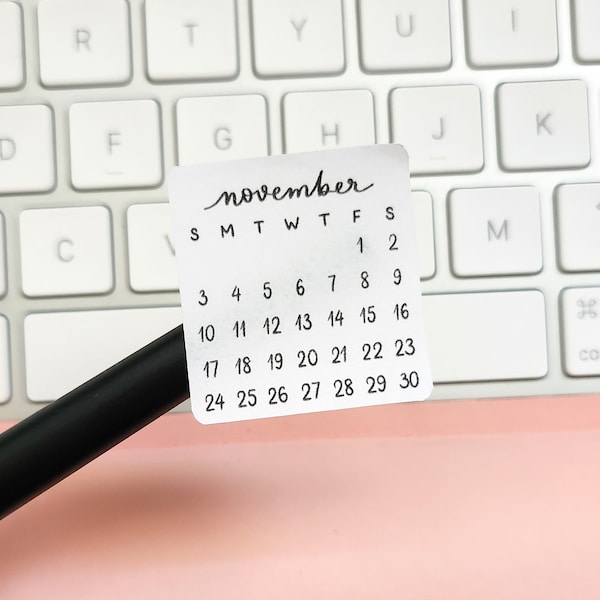 R T Y U I
D F G H J K
november
S M T W T F S
1 2
3 4 5 6 7 8 9
10 11 12 13 14 15 16
17 18 19 20 21 22 23
24 25 26 27 28 29 30
C V M
⌘